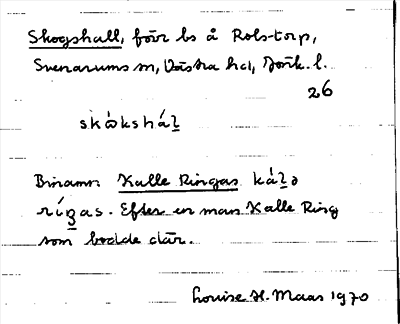 Skogshall, förr ls å Rolstorp,
Svenarums sn, Västra hd, Jönk. l.
26
skώkshál̲
Binamn: Kalle Ringas kál̲ə
ríŋas. Efter en man Kalle Ring
som bodde där.
Louise H. Maas 1970